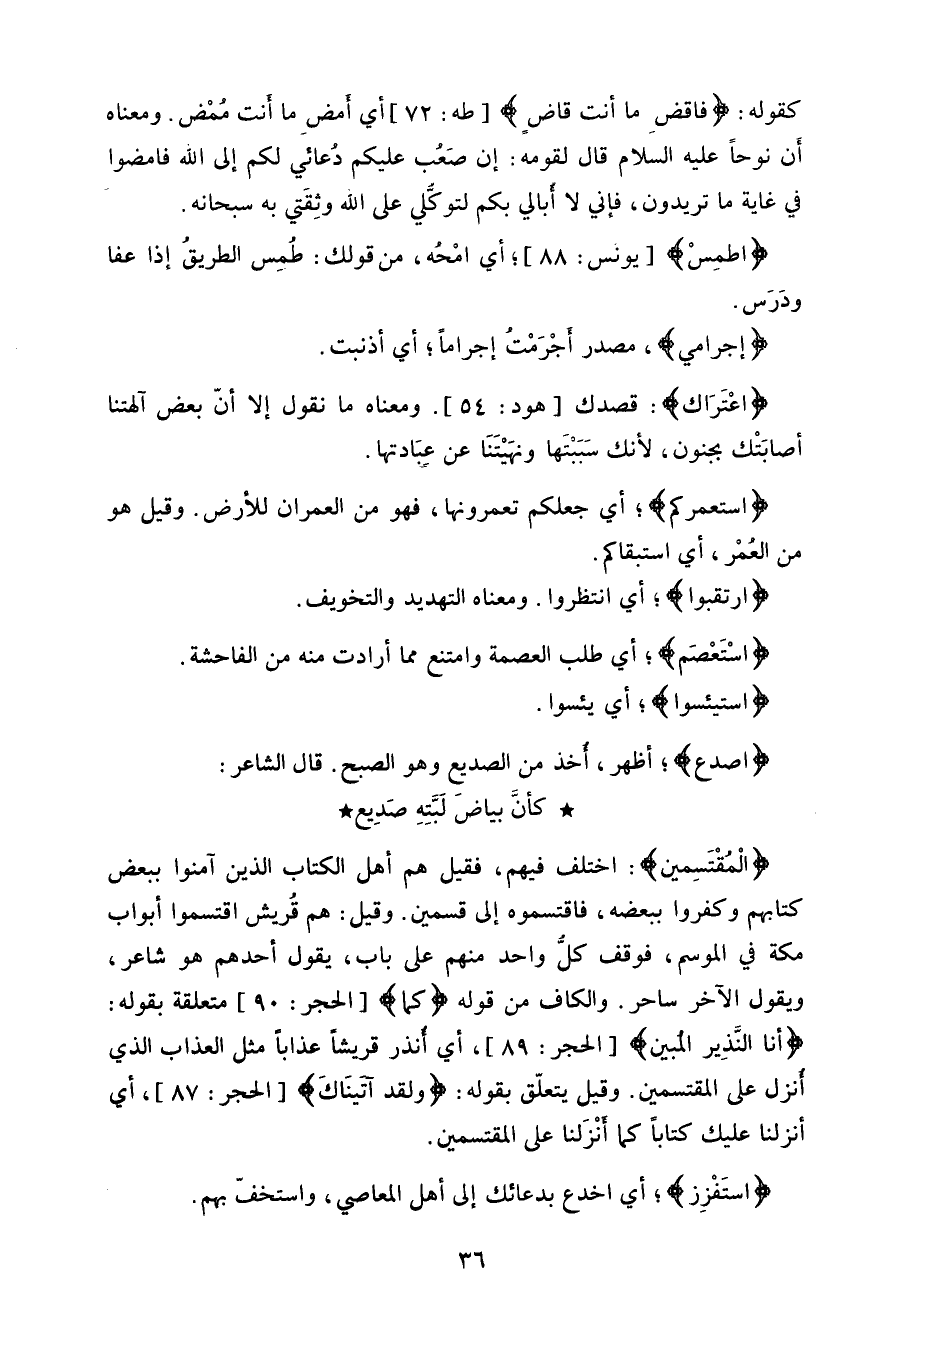 كقوله: ﴿فاقضِ ما أنت قاضٍ﴾ [طه: ٧٢] أي أَمضِ ما أَنت مُمْضٍ. ومعناه
أن نوحاً عليه السلام قال لقومه: إن صَعُب عليكم دُعائي لكم إلى الله فامضوا
في غاية ما تريدون، فإني لا أَبالي بكم لتوكَّلي على الله وثِقَتي به سبحانه.
﴿اطمِسْ﴾ [يونس: ٨٨]؛ أي امْحُه، من قولك: طُمِس الطريقُ إذا عفا
ودَرَس.
﴿إجرامي﴾، مصدر أَجْرَمْتُ إجراماً؛ أي أذنبت.
﴿اعْتَرَاك﴾: قصدك [هود: ٥٤]. ومعناه ما نقول إلا أنّ بعض آلهتنا
أصابَتْك بجنون، لأنك سَبَبْتَها ونهَيْتَنَا عن عِبَادتها.
﴿استعمركم﴾؛ أي جعلكم تعمرونها، فهو من العمران للأرض. وقيل هو
من العُمْر، أي استبقاكم.
﴿ارتقبوا﴾؛ أي انتظروا. ومعناه التهديد والتخويف.
﴿اسْتَعْصَم﴾؛ أي طلب العصمة وامتنع مما أرادت منه من الفاحشة.
﴿استيئسوا﴾؛ أي يئسوا.
﴿اصدع﴾؛ أظهر، أَخذ من الصديع وهو الصبح. قال الشاعر:
★ كأنَّ بياضَ لَبَّتِهِ صَدِيع★
﴿الْمُقْتَسِمين﴾: اختلف فيهم، فقيل هم أهل الكتاب الذين آمنوا ببعض
كتابهم وكفروا ببعضه، فاقتسموه إلى قسمين. وقيل: هم قُريش اقتسموا أبواب
مكة في الموسم، فوقف كلُّ واحد منهم على باب، يقول أحدهم هو شاعر،
ويقول الآخر ساحر. والكاف من قوله ﴿كما﴾ [الحجر: ٩٠] متعلقة بقوله:
﴿أنا النَّذِير المُبين﴾ [الحجر: ٨٩]، أي أُنذر قريشاً عذاباً مثل العذاب الذي
أُنزل على المقتسمين. وقيل يتعلّق بقوله: ﴿ولقد آتَينَاكَ﴾ [الحجر: ٨٧]، أي
أنزلنا عليك كتاباً كما أَنْزَلنا على المقتسمين.
﴿استَفْزِز﴾؛ أي اخدع بدعائك إلى أهل المعاصي، واستخفّ بهم.
٣٦